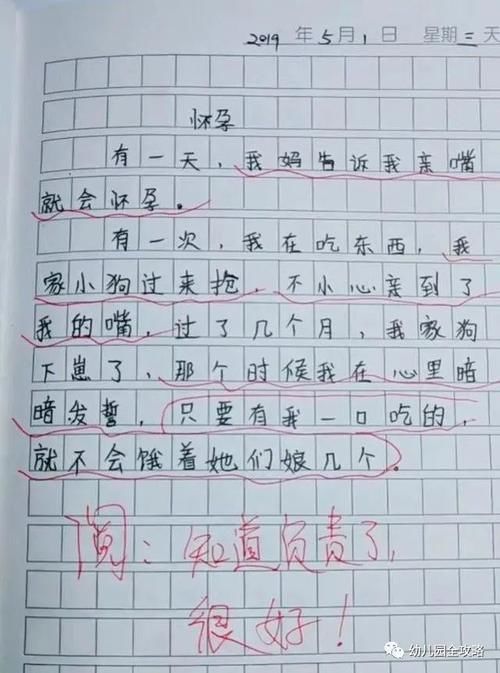 2019 年 5 月 1 日 星期 三 天
怀孕
有一天，我妈告诉我亲嘴
就会怀孕。
有一次，我在吃东西，我
家小狗过来抢，不小心亲到了
我的嘴，过了几个月，我家狗
下崽了，那个时候我在心里暗
暗发誓，只要有我一口吃的，
就不会饿着她们娘几个。
阅：知道负责了，
很好！
幼儿园全攻略